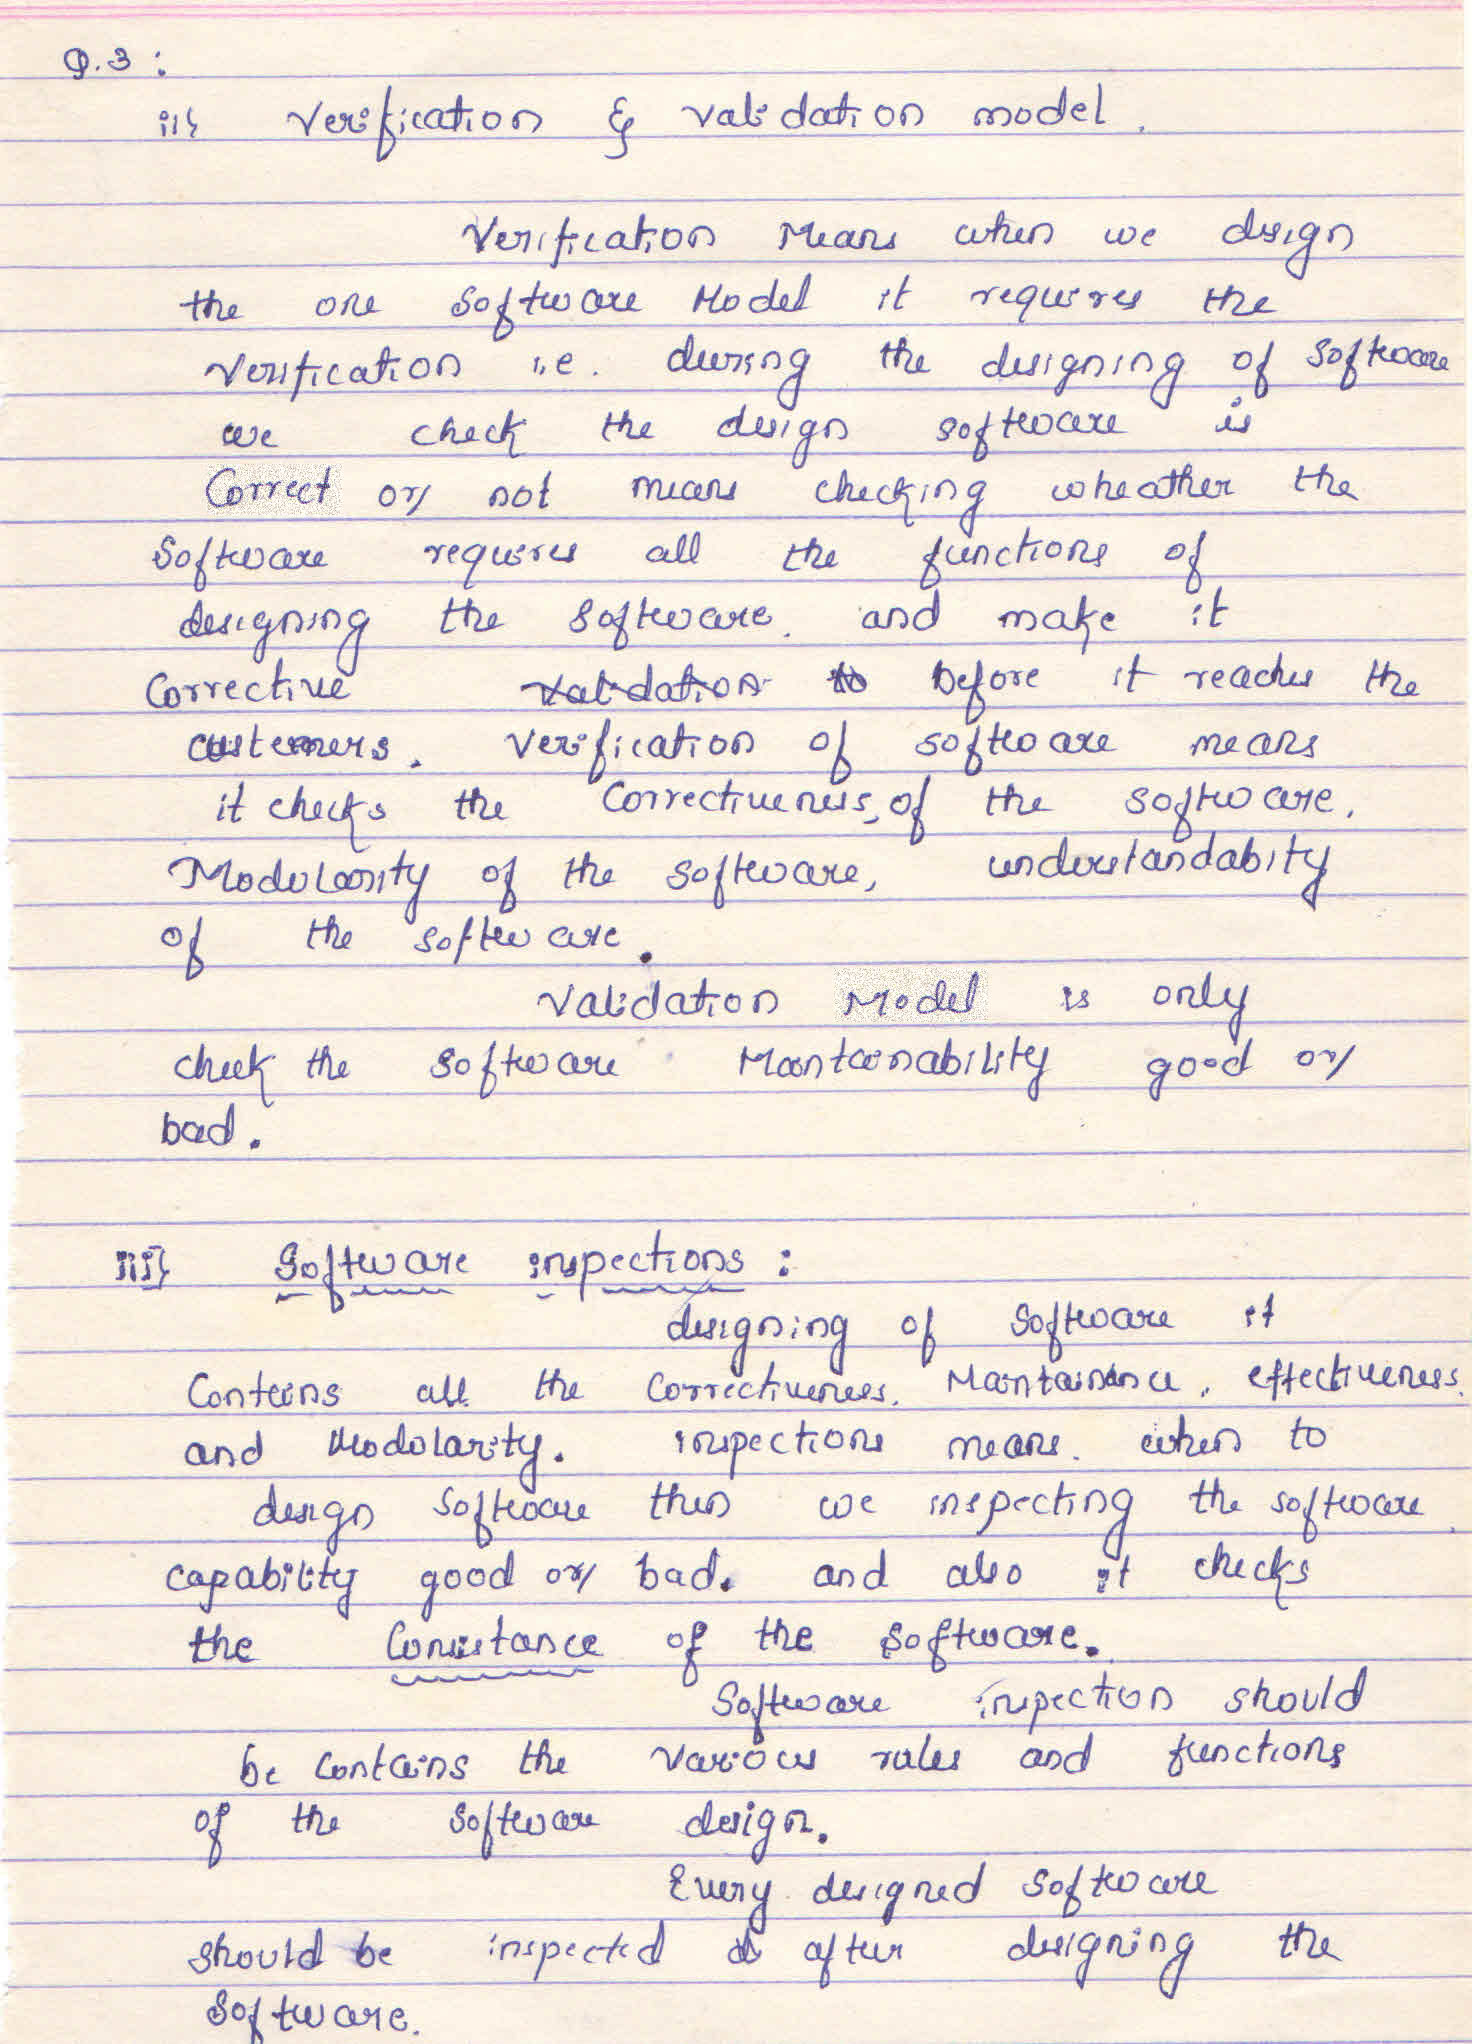 Q.3 :
ii} Verification & validation model.
Verification Means when we design
the one software Model it requires the
verification i.e. during the designing of software
we check the design software is
Correct or not means checking wheather the
Software requires all the functions of
designing the software. and make it
Corrective validation to before it reaches the
customers. Verification of software means
it checks the Correctiveness, of the software.
Modularity of the software, understandabity
of the software.
Validation Model is only
check the software Maintainability good or
bad.
iii} Software inspections :
designing of software it
Contains all the correctiveness. Maintainance, effectiveness.
and Modularity. inspections means. when to
design software then we inspecting the software
capability good or bad. and also it checks
the Consistance of the software.
Software inspection should
be contains the various rules and functions
of the software design.
Every designed software
should be inspected after designing the
software.